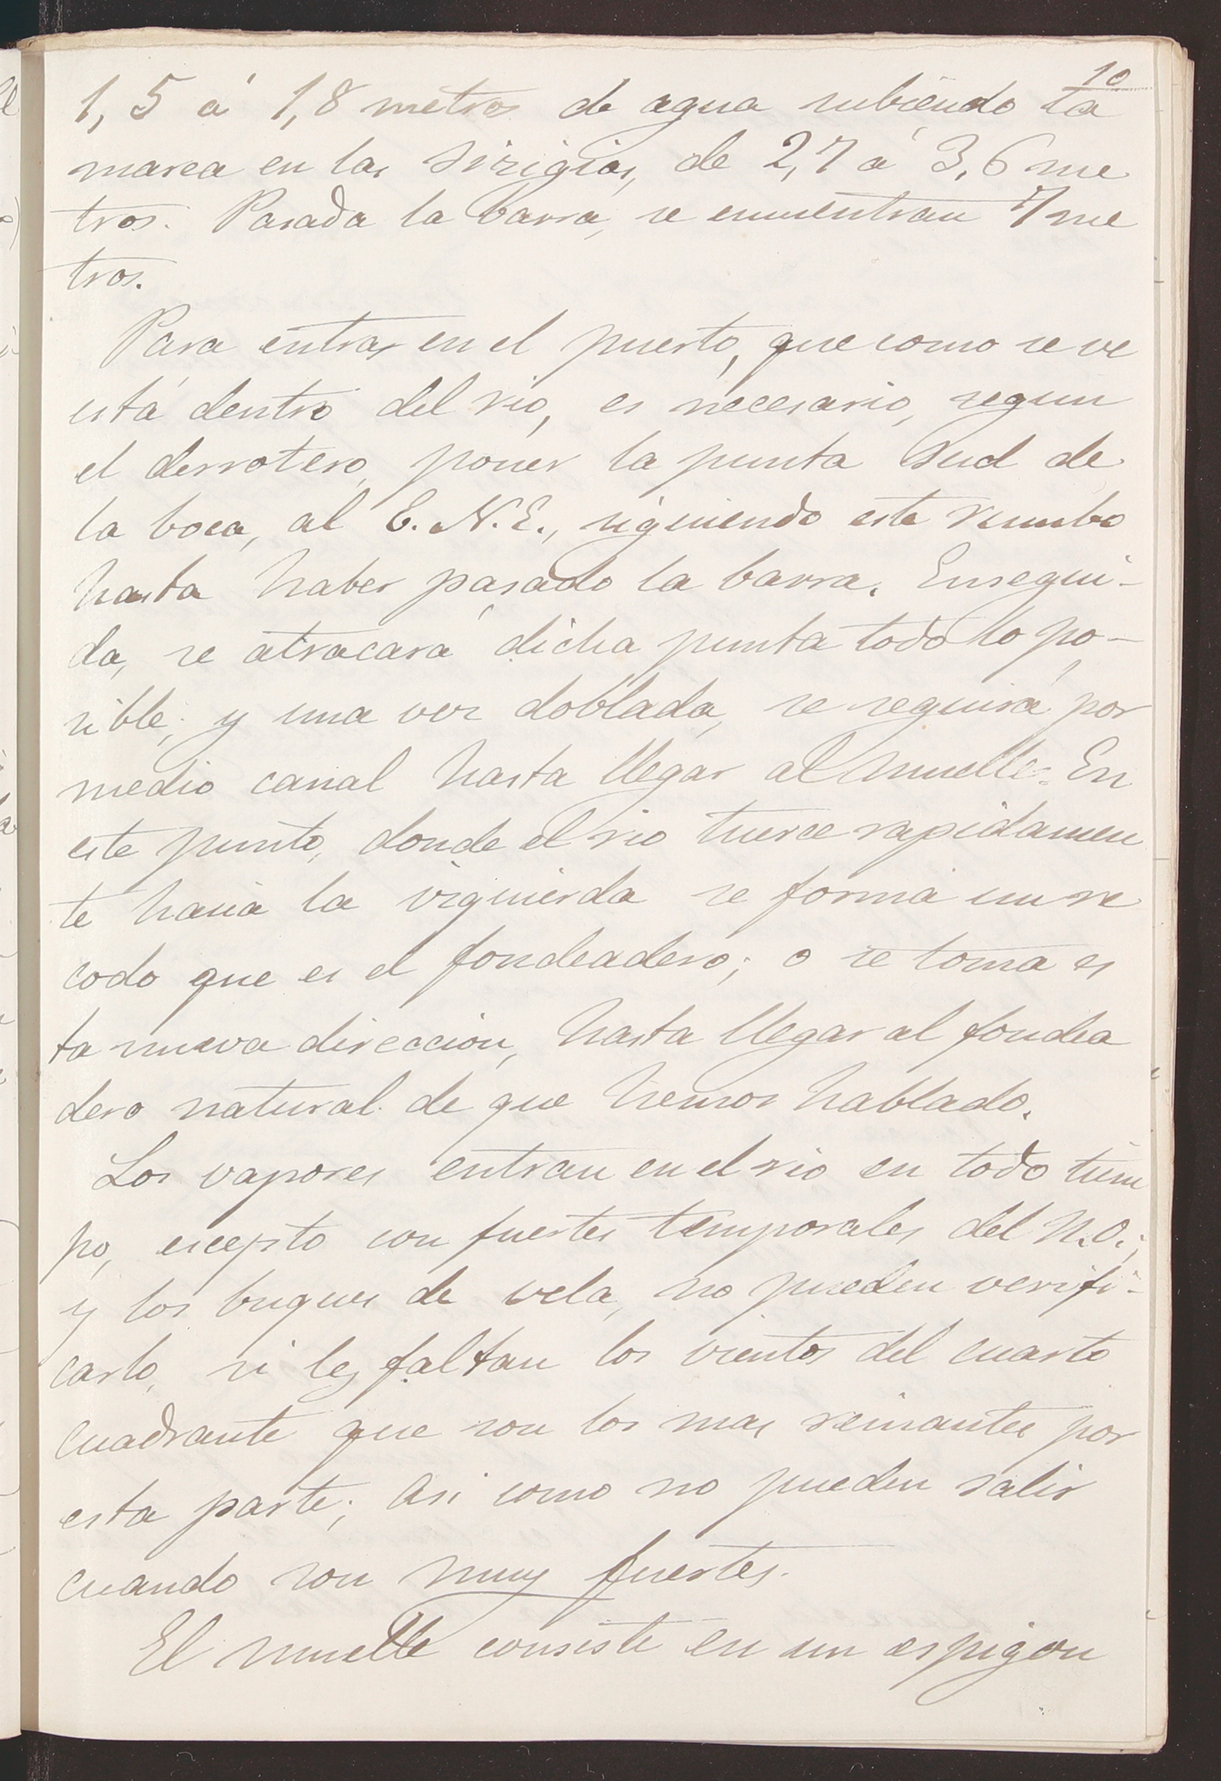 10
1,5 á 1,8 metros de agua subiendo la
marea en las sizigias, de 2,7 á 3,6 me
tros. Pasada la barra, se encuentran 7 me
tros.
Para entrar en el puerto, que como se ve
está dentro del rio, es necesario, segun
el derrotero, poner la punta Sud de
la boca, al E.N.E., siguiendo este rumbo
hasta haber pasado la barra. Ensegui-
da, se atracará dicha punta todo lo po-
sible; y una vez doblada, se seguirá por
medio canal hasta llegar al muelle. En
este punto, donde el rio tuerce rapidamen
te hacia la izquierda se forma un re
codo que es el fondeadero; o se toma es
ta nueva direccion, hasta llegar al fondea
dero natural de que hemos hablado.
Los vapores entran en el rio en todo tiem
po, escepto con fuertes temporales del N.O.;
y los buques de vela, no pueden verifi-
carlo, si les faltan los vientos del cuarto
cuadrante que son los mas reinantes por
esta parte; asi como no pueden salir
cuando son muy fuertes.
El muelle consiste en un espigon